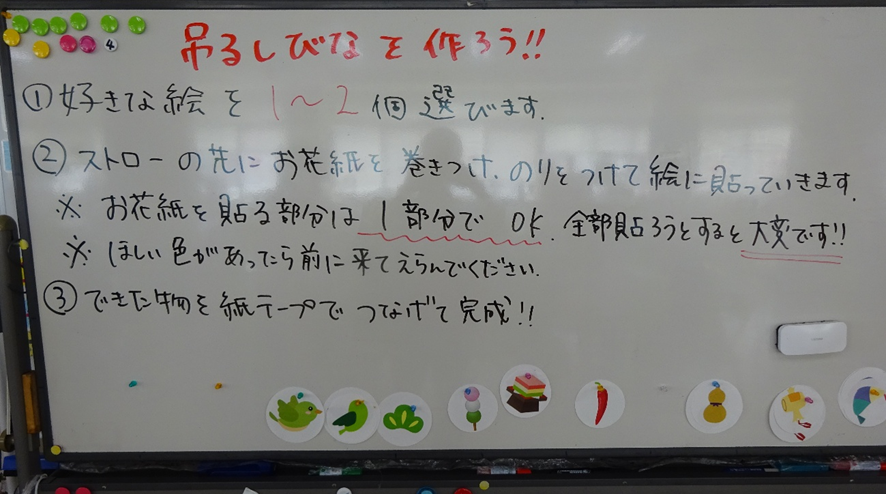 4
吊るしびなを作ろう!!
①好きな絵を1〜2個選びます.
②ストローの先にお花紙を巻きつけ、のりをつけて絵に貼っていきます.
※お花紙を貼る部分は1部分でOK. 全部貼ろうとすると大変です!!
※ほしい色があったら前に来てえらんでください.
③できた物を紙テープでつなげて完成!!